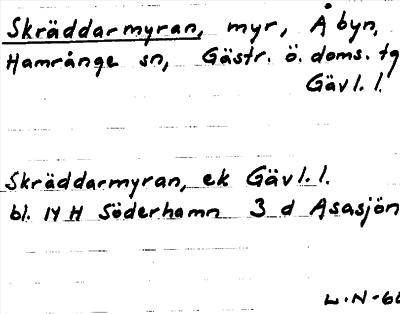 Skräddarmyran, myr, Åbyn,
Hamrånge sn, Gästr. ö. doms. tg
Gävl. l.
Skräddarmyran, ek Gävl. l.
bl. 14 H Söderhamn 3 d Asasjön
L.N-66